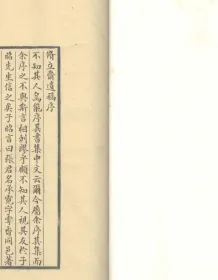 立齋遺稿序
不知其人烏能序其書集中文云爾今屬余序其集而
余序之不與斯言相剌謬乎顧不知其人視其友於子
臨先生信之矣子臨言曰張君名承寬字香同邑著